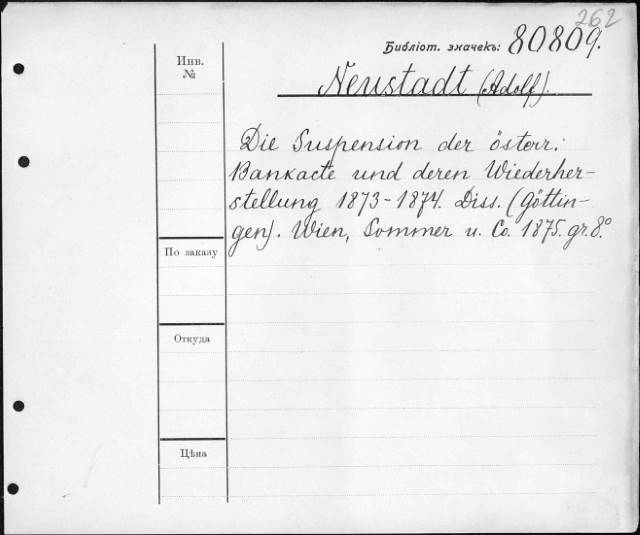 262
Библіот. значекъ: 80809.
Инв.
№
Neustadt (Adolf).
Die Suspension der österr.
Bankacte und deren Wiederher-
stellung 1873-1874. Diss. (Göttin-
gen). Wien, Sommer u. Co. 1875. gr. 8.°
По заказу
Откуда
Цѣна